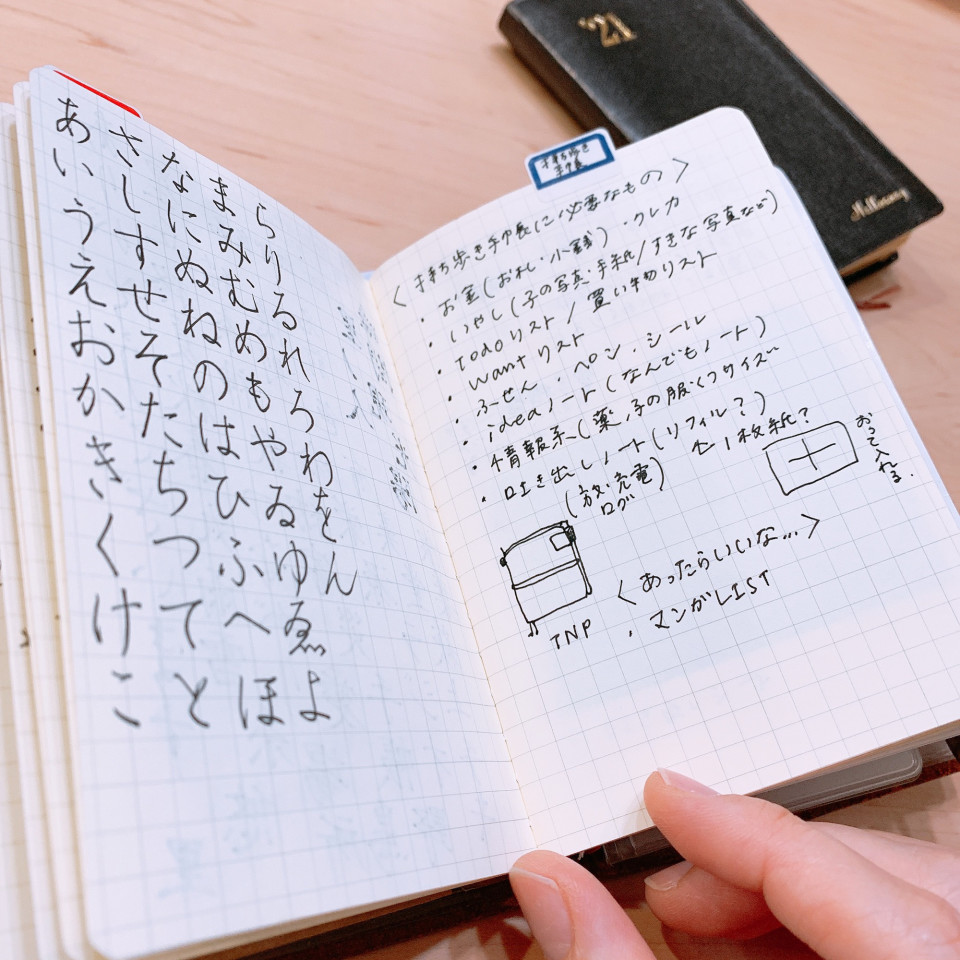 あいうえおかきくけこ
さしすせそたちつてと
なにぬねのはひふへほ
まみむめもやゐゆゑよ
らりるれろわをん
持ち歩き
手帳
<持ち歩き手帳に必要なもの>
・お金(お札・小銭)・クレカ
・いやし(子の写真・手紙/すきな写真など)
・Todoリスト/買い物リスト
・wantリスト
・ふせん・ペン・シール
・ideaノート(なんでもノート)
・情報系(薬,子の服・くつサイズ
・吐き出しノート(リフィル?)
1枚紙?
(放・充電)
ログ
おって入れる.
TNP
<あったらいいな…>
・マンガLIST
'21